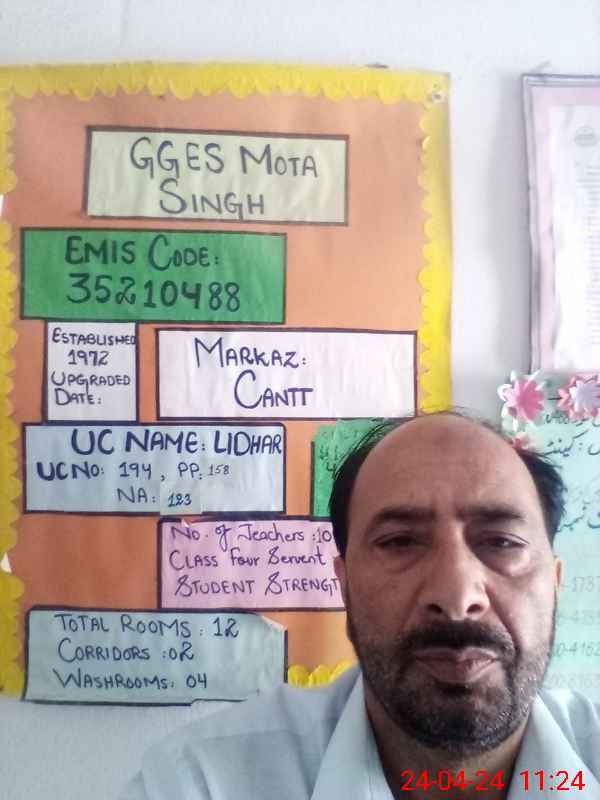 GGES MOTA
SINGH
EMIS CODE:
35210488
ESTABLISHED
1972
UPGRADED
DATE:
MARKAZ:
CANTT
UC NAME: LIDHAR
UC NO: 194, PP: 158
NA: 123
No. of Teachers: 10
CLASS Four Servent
STUDENT STRENGT
TOTAL ROOMS: 12
CORRIDORS: 02
WASHROOMS: 04
24-04-24 11:24